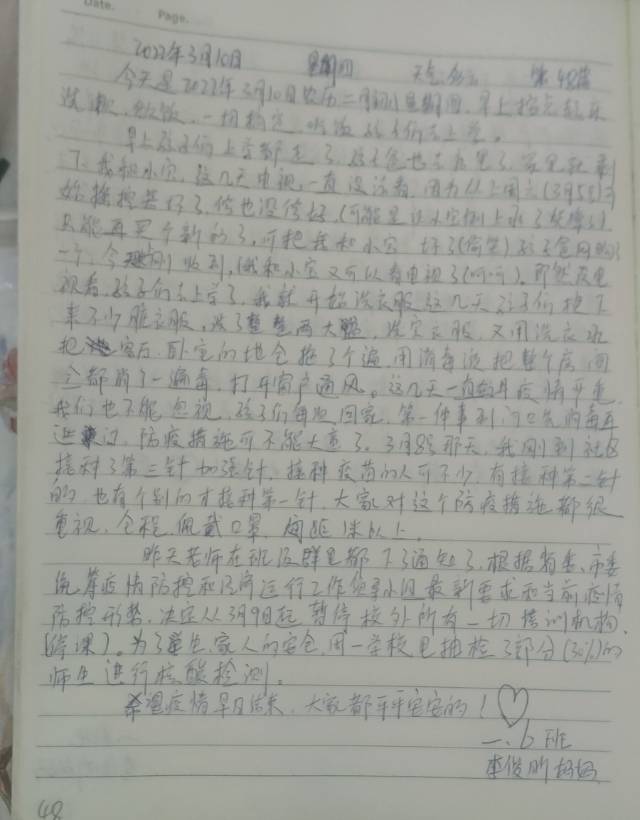 Date.
Page.
2022年3月10日 星期四 天气:多云 第48篇
今天是2022年3月10日农历二月初八星期四,早上按点起床
洗漱、做饭,一切搞定,吃饭孩子们去上学。
早上孩子们上学都走了,孩子爸也去
了,我和小宝,这几天电视一直没法看,因为从上周六(3月5号)开
始摇控器坏了,修也没修好,(可能是让小宝倒上水了
只能再买个新的了,可把我和小宝 坏了(偷笑)孩子爸网购了
一个,今天刚收到,(我和小宝又可以看电视了(呵呵)。即然没电
视看,孩子们去上学了,我就开始洗衣服这几天孩子们换下
来不少脏衣服,洗了整整两大 ,洗完衣服,又用洗衣水
把客厅、卧室的地全拖了个遍,用消毒液把整个房间
全都消了一遍毒,打开窗户通风。这几天一直 疫情严重,
我们也不能忽视,孩子们每次回家,第一件事到门口先消毒再
进家门,防疫措施可不能大意了。3月8号那天,我刚到社区
接种了第三针加强针,接种疫苗的人可不少,有接种第二针
的,也有个别的才接种第一针,大家对这个防疫措施都很
重视,全程,佩戴口罩,间距1米以上。
昨天老师在班级群里都下了通知了,根据省委、市委
统筹疫情防控和经济运行工作领导小组最新要求和当前疫情
防控形势,决定从3月9日起暂停校外所有一切培训机构,
(停课)。为了学生,家人的安全,周一学校里抽检了部分(30%)的
师生进行核酸检测。
希望疫情早日结束,大家都平平安安的!♡
一、6班
李俊昕妈妈
48